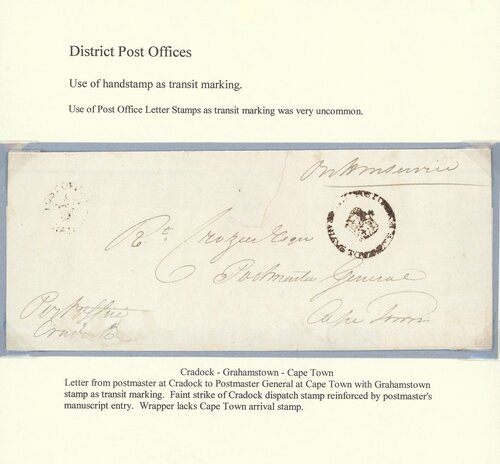 District Post Offices
Use of handstamp as transit marking.
Use of Post Office Letter Stamps as transit marking was very uncommon.
On Hm service
POST OFF
Rt. Crozier Esqr
Postmaster General
Cape Town
Post Office
Cradock
Cradock - Grahamstown - Cape Town
Letter from postmaster at Cradock to Postmaster General at Cape Town with Grahamstown
stamp as transit marking.  Faint strike of Cradock dispatch stamp reinforced by postmaster's
manuscript entry.  Wrapper lacks Cape Town arrival stamp.